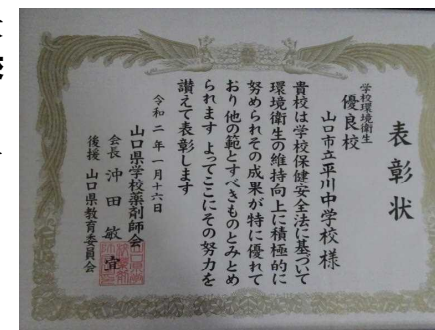 表彰状
学校環境衛生
優良校
山口市立平川中学校様
貴校は学校保健安全法に基づいて
環境衛生の維持向上に積極的に
努められその成果が特に優れて
おり他の範とすべきものとみとめ
られます よってここにその努力を
讃えて表彰します
令和二年一月十六日
山口県学校薬剤師会
会長 沖田敏宣
後援 山口県教育委員会